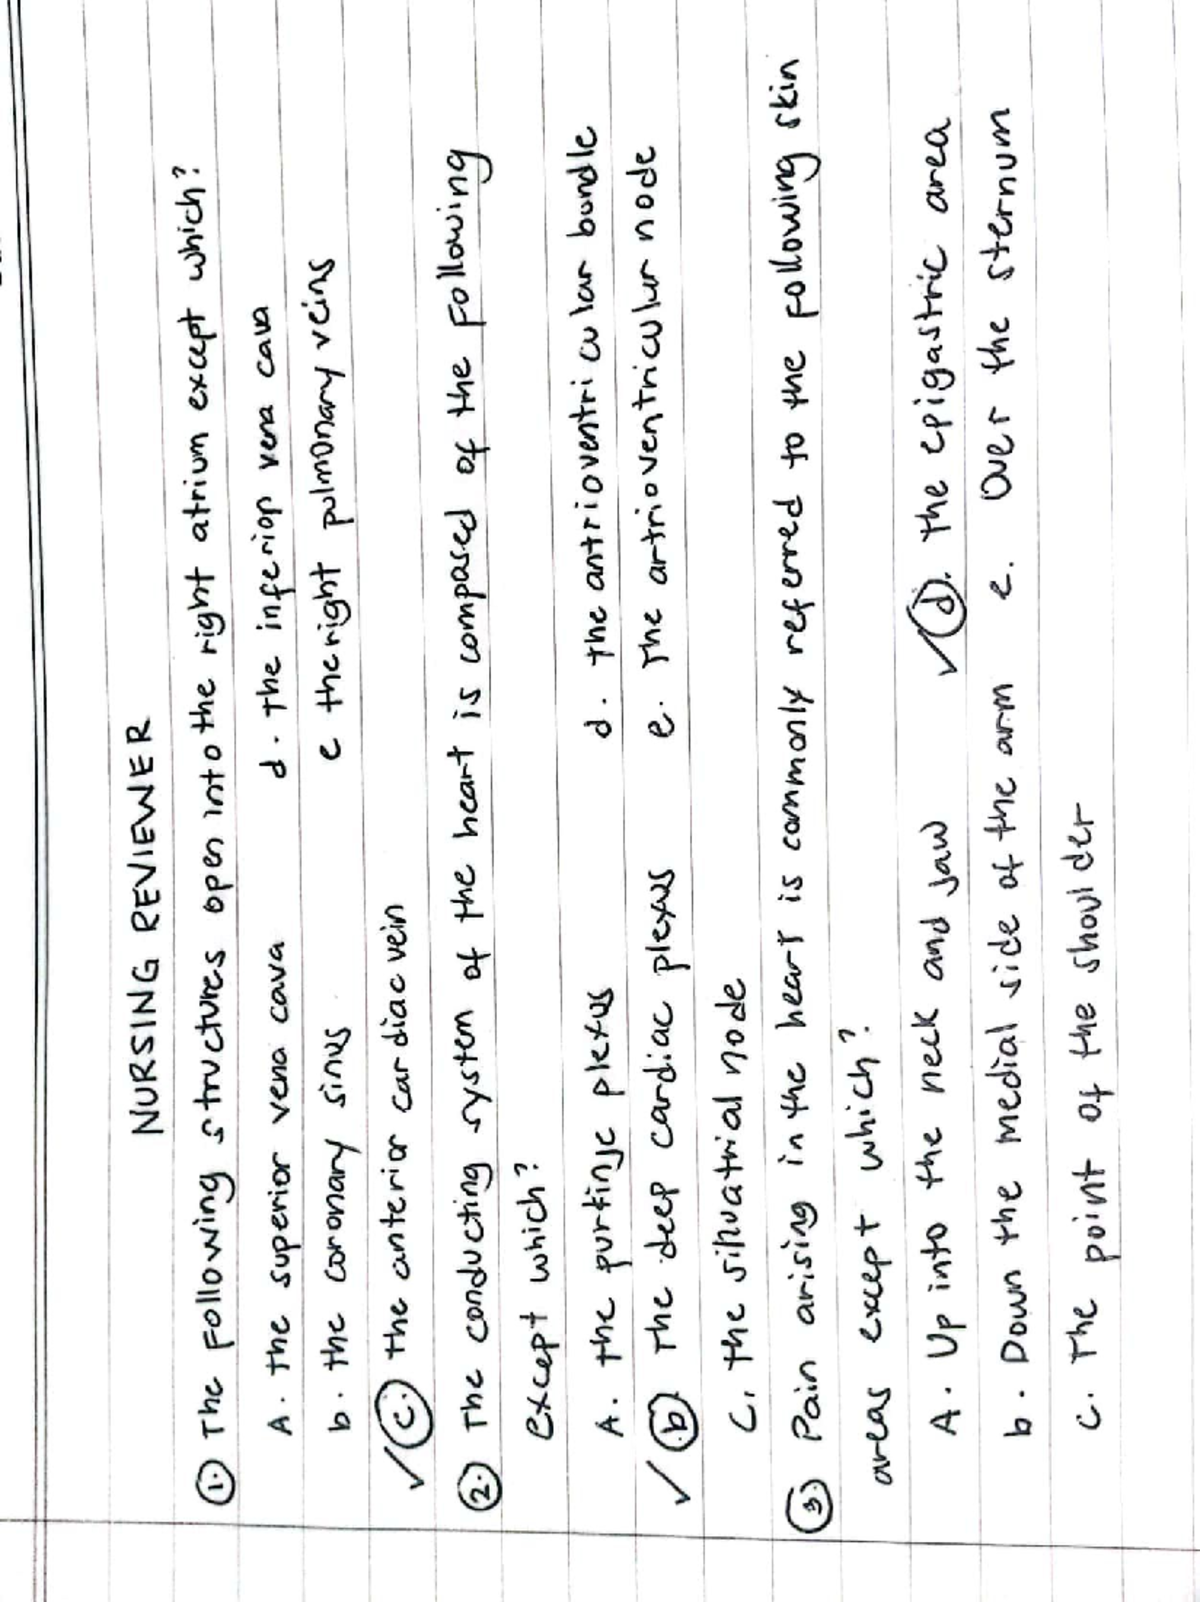 NURSING REVIEWER
1. The following structures open into the right atrium except which?
A. the superior vena cava d. the inferiop vena cava
b. the coronary sinus e the right pulmonary veins
c. the anterior cardiac vein
2. The conducting system of the heart is compased of the following
except which?
A. the purkinje plexus d. the antrioventricular bundle
b. The deep cardiac plexus e. The artrioventricular node
C. the sihuatrial node
3. Pain arising in the heart is commonly referred to the following skin
areas except which?
A. Up into the neck and Jaw d. the epigastric area
b. Down the medial side of the arm e. Over the sternum
c. The point of the shoulder